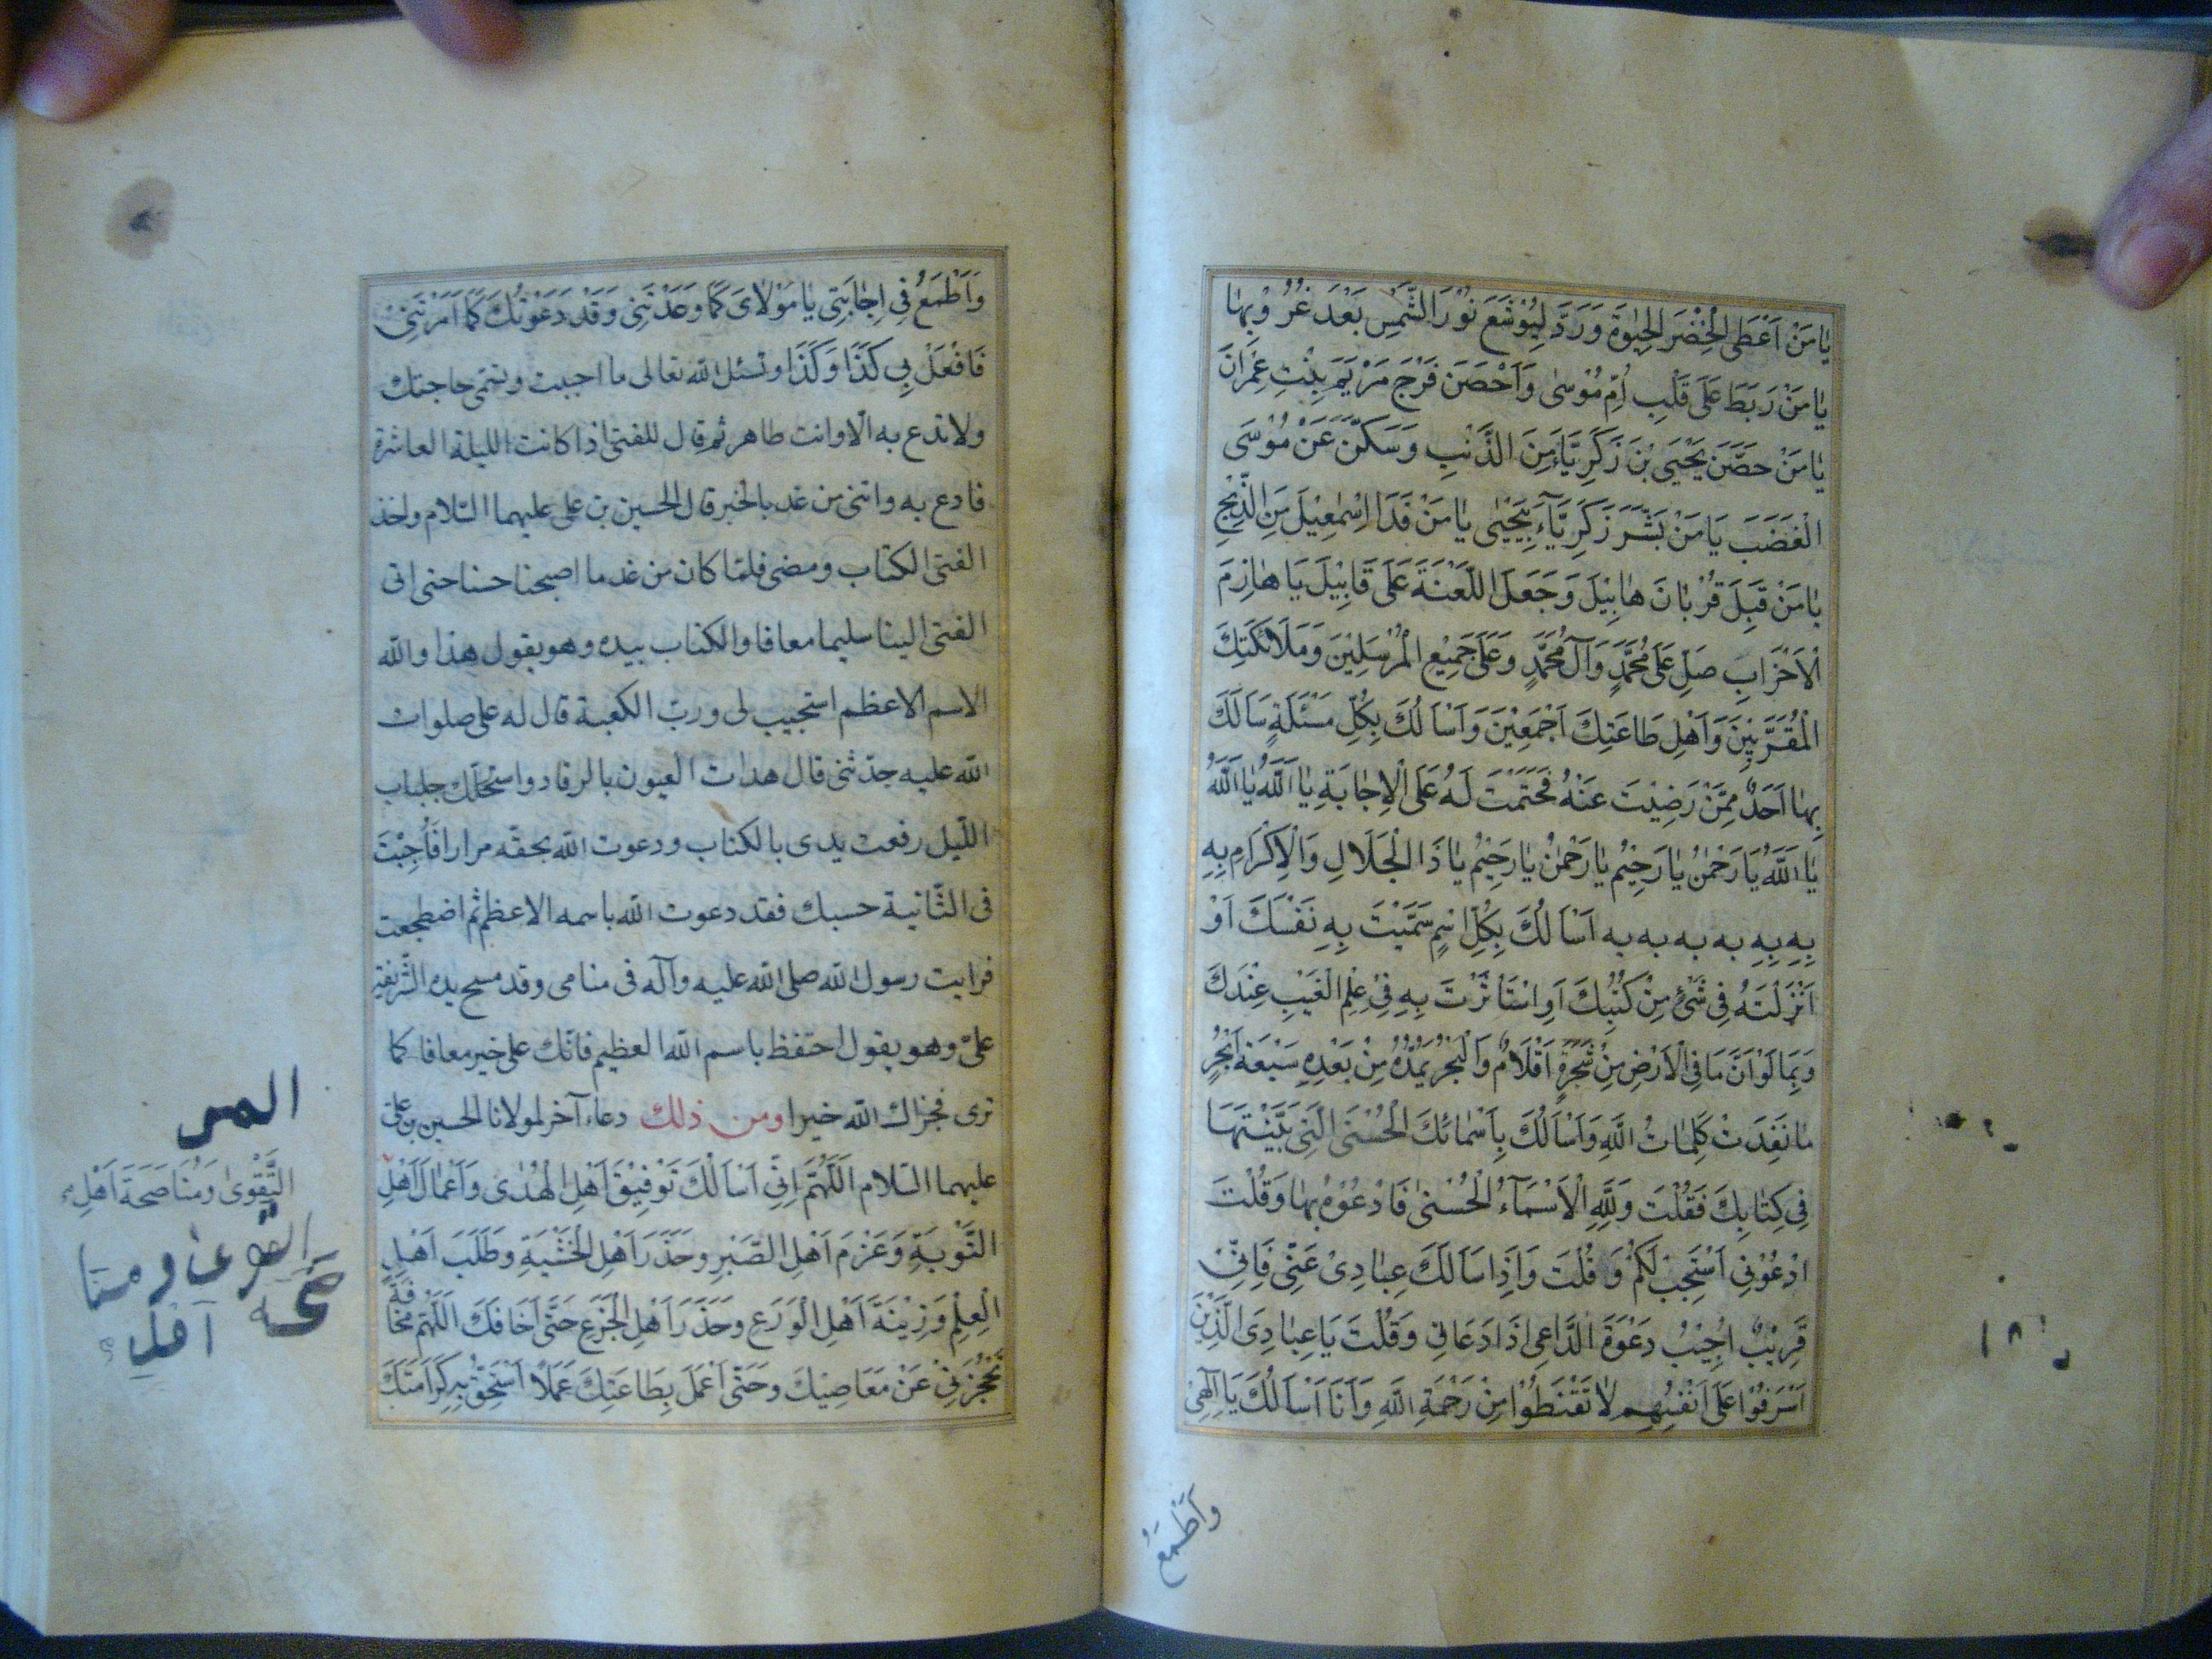 يَا مَنْ اَعْطَى الْخِضْرَ الْحَيٰوةَ وَرَدَّ لِيُوْشَعَ نُوْرَ الشَّمْسِ بَعْدَ غُرُوْبِهَا
يَا مَنْ رَبَطَ عَلَى قَلْبِ اُمِّ مُوْسٰى وَاَحْصَنَ فَرْجَ مَرْيَمَ بِنْتِ عِمْرَانَ
يَا مَنْ حَصَّنَ يَحْيَى بْنَ زَكَرِيَّاءَ مِنَ الذَّنْبِ وَسَكَّنَ عَنْ مُوْسَى
الْغَضَبَ يَا مَنْ بَشَّرَ زَكَرِيَّآءَ بِيَحْيٰى يَا مَنْ فَدَا اِسْمٰعِيْلَ مِنَ الذَّبْحِ
يَا مَنْ قَبِلَ قُرْبَانَ هَابِيْلَ وَجَعَلَ اللَّعْنَةَ عَلَى قَابِيْلَ يَا هَازِمَ
الْاَحْزَابِ صَلِّ عَلَى مُحَمَّدٍ وَآلِ مُحَمَّدٍ وَعَلَى جَمِيْعِ الْمُرْسَلِيْنَ وَمَلَائِكَتِكَ
الْمُقَرَّبِيْنَ وَاَهْلِ طَاعَتِكَ اَجْمَعِيْنَ وَاَسْاَلُكَ بِكُلِّ مَسْئَلَةٍ سَاَلَكَ
بِهَا اَحَدٌ مِمَّنْ رَضِيْتَ عَنْهُ فَحَتَمْتَ لَهُ عَلَى الْاِجَابَةِ يَا اَللّٰهُ يَا اَللّٰهُ
يَا اَللّٰهُ يَا رَحْمٰنُ يَا رَحِيْمُ يَا رَحْمٰنُ يَا رَحِيْمُ يَا ذَا الْجَلَالِ وَالْاِكْرَامِ بِهِ
بِهِ بِهِ به به به به اَسْاَلُكَ بِكُلِّ اسْمٍ سَمَّيْتَ بِهِ نَفْسَكَ اَوْ
اَنْزَلْتَهُ فِي شَيْءٍ مِنْ كُتُبِكَ اَوِ اسْتَأْثَرْتَ بِهِ فِيْ عِلْمِ الْغَيْبِ عِنْدَكَ
وَبِمَا لَوْ اَنَّ مَا فِي الْاَرْضِ مِنْ شَجَرَةٍ اَقْلَامٌ وَالْبَحْرُ يَمُدُّهُ مِنْ بَعْدِهِ سَبْعَةُ اَبْحُرٍ
مَا نَفِدَتْ كَلِمَاتُ اللّٰهِ وَاَسْاَلُكَ بِاَسْمَائِكَ الْحُسْنَى الَّتِي بَيَّنْتَهَا
فِي كِتَابِكَ فَقُلْتَ وَلِلّٰهِ الْاَسْمَآءُ الْحُسْنٰى فَادْعُوْهُ بِهَا وَقُلْتَ
ادْعُوْنِي اَسْتَجِبْ لَكُمْ وَقُلْتَ وَاِذَا سَاَلَكَ عِبَادِىْ عَنِّى فَاِنِّىْ
قَرِيْبٌ اُجِيْبُ دَعْوَةَ الدَّاعِى اِذَا دَعَانِى وَقُلْتَ يَا عِبَادِىَ الَّذِيْنَ
اَسْرَفُوْا عَلَى اَنْفُسِهِمْ لَا تَقْنَطُوْا مِنْ رَحْمَةِ اللّٰهِ وَاَنَا اَسْاَلُكَ يَا اِلٰهِىْ
وَاَطْمَعُ
وَاَطْمَعُ فِى اِجَابَتِى يَا مَوْلَاىَ كَمَا وَعَدْتَنِى وَقَدْ دَعَوْتُكَ كَمَا اَمَرْتَنِىْ
فَافْعَلْ بِى كَذَا وَكَذَا وتسئل الله تعالى ما احببت وتسمى حاجتك
ولا تدع به الا وانت طاهر ثم قال للفتى اذا كانت الليلة العاشرة
فادع به واتنى من غد بالخبر قال الحسين بن على عليهما السّلام واخذ
الفتى الكتاب ومضى فلمّا كان من غد ما اصبحنا حسنا حتى اتى
الفتى الينا سليما معافا والكتاب بيده وهو يقول هذا والله
الاسم الاعظم استجيب لى وربّ الكعبة قال له على صلوات
الله عليه حدّثنى قال هدات العيون بالرقاد واستحلك جلباب
اللّيل رفعت يدى بالكتاب ودعوت الله بحقّه مرارا فَاُجِبْتُ
فى الثّانية حسبك فقد دعوت الله باسمه الاعظم ثم اضطجعت
فرايت رسول الله صلى الله عليه وآله فى منامى وقد مسح يده الشّريفة
علىّ وهو يقول احتفظ باسم الله العظيم فانّك على خير معافا كما
ترى فجزاك الله خيرا ومن ذلك دعاء آخر لمولانا الحسين بن على
عليهما السّلام اَللّٰهُمَّ اِنِّى اَسْاَلُكَ تَوْفِيْقَ اَهْلِ الْهُدٰى وَاَعْمَالَ اَهْلِ
التَّوْبَةِ وَعَزْمَ اَهْلِ الصَّبْرِ وَحَذَرَ اَهْلِ الْخَشْيَةِ وَطَلَبَ اَهْلِ
الْعِلْمِ وَزِيْنَةَ اَهْلِ الْوَرَعِ وَحَذَرَ اَهْلِ الْجَزَعِ حَتّٰى اَخَافَكَ اَللّٰهُمَّ مَخَافَةً
تَحْجُزُنِىْ عَنْ مَعَاصِيْكَ وَحَتّٰى اَعْمَلَ بِطَاعَتِكَ عَمَلًا اَسْتَحِقُّ بِهِ كَرَامَتَكَ
التَّقْوٰى وَمُنَاصَحَةَ اَهْلِ
اَهْلِ